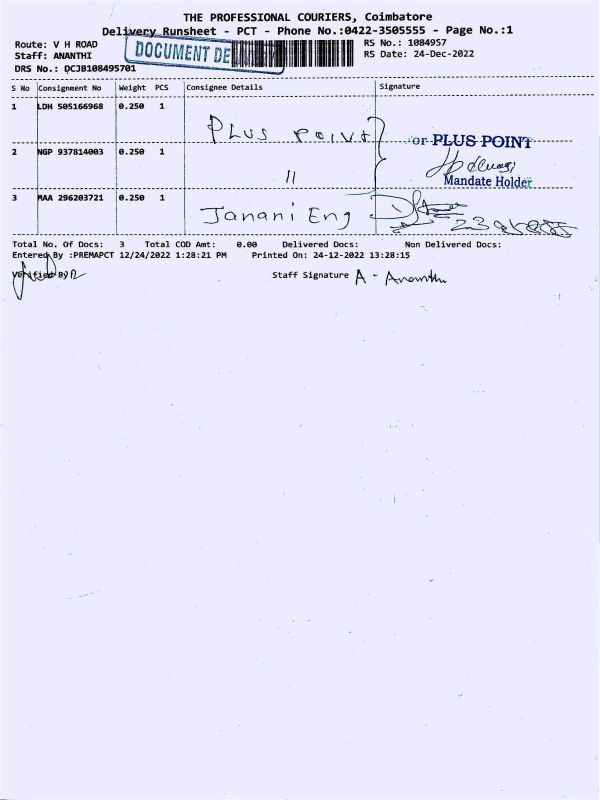 THE PROFESSIONAL COURIERS, Coimbatore
Delivery Runsheet - PCT - Phone No.:0422-3505555 - Page No.:1
Route: V H ROAD
Staff: ANANTHI
DRS No.: DCJB108495701
DOCUMENT DE
RS No.: 1084957
RS Date: 24-Dec-2022
S No Consignment No Weight PCS Consignee Details Signature
1 LDH 505166968 0.250 1 PLUS POINT
or PLUS POINT
Mandate Holder
2 NGP 937814003 0.250 1 11
3 MAA 296203721 0.250 1 Janani Eng
Total No. Of Docs: 3 Total COD Amt: 0.00 Delivered Docs: Non Delivered Docs:
Entered By :PREMAPCT 12/24/2022 1:28:21 PM Printed On: 24-12-2022 13:28:15
Verified By Staff Signature A - Ananthi